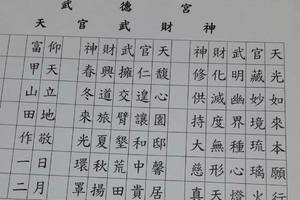 武德宮
天官武財神
天光如來本願行
官藏妙境琉璃火
武明幽界種心燈
財化度無形天
神修供持大慈真
天馥心園邸馨居
官仁遑讓和中貴
武擁臂墾荒田
財興道交夏秋揚
神春冬來光環軍
仰天立地敬日月
富甲山田作一二